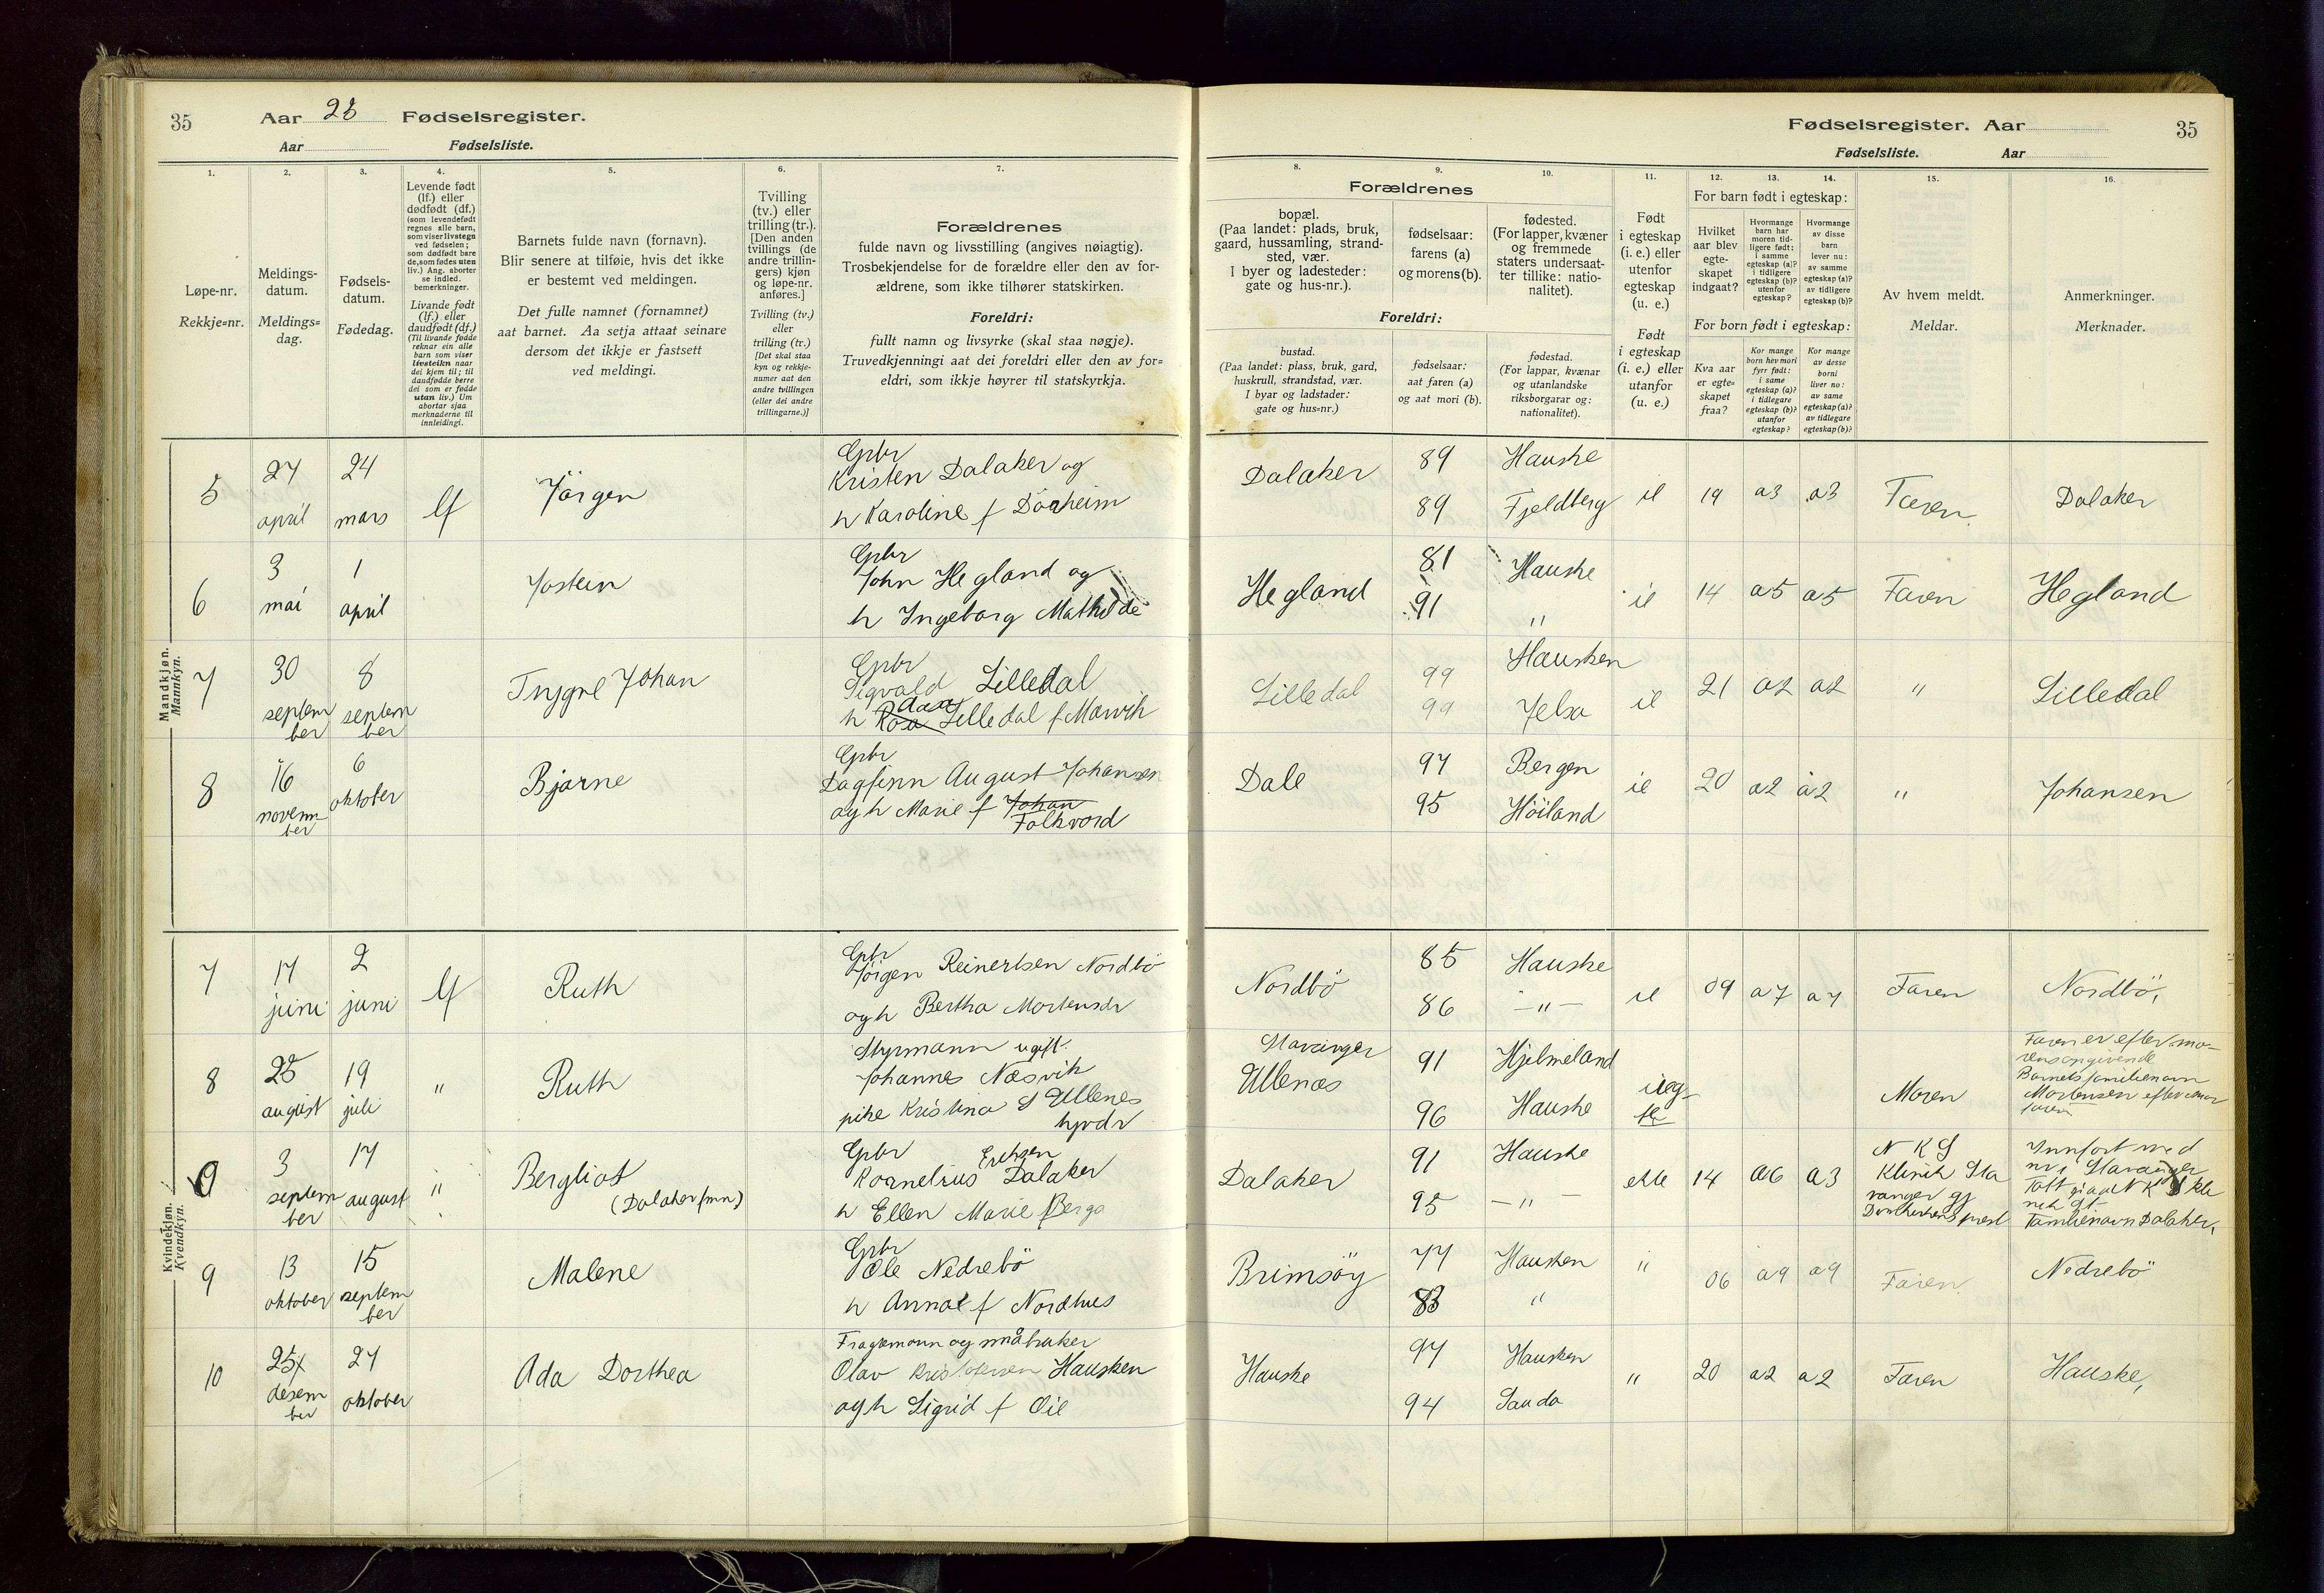 35 Aar 28 Fødselsregister.
Aar Fødselsliste.
Fødselsregister. Aar 35
Fødselsliste. Aar
1. 2. 3. 4. 5. 6. 7.
Løpe-nr.
Rekkje=nr.
Meldings-
datum.
Meldings=
dag.
Fødsels-
datum.
Fødedag.
Levende født
(lf.) eller
dødfødt (df.)
(som levendefødt
regnes alle barn,
som viser livstegn
ved fødselen;
som dødfødt bare
de, som fødes uten
liv.) Ang. aborter
se indled.
bemerkninger.
Livande født
(lf.) eller
daudfødt (df.)
(Til livande fødde
reknar ein alle
barn som viser
livsteikn naar
dei kjem til; til
daudfødde berre
dei som er fødde
utan liv.) Um
abortar sjaa
merknaderne til
innleidingi.
Barnets fulde navn (fornavn).
Blir senere at tilføie, hvis det ikke
er bestemt ved meldingen.
Det fulle namnet (fornamnet)
aat barnet. Aa setja attaat seinare
dersom det ikkje er fastsett
ved meldingi.
Tvilling
(tv.) eller
trilling (tr.).
[Den anden
tvillings (de
andre trillin-
gers) kjøn
og løpe-nr.
anføres.]
Tvilling (tv.)
eller
trilling (tr.)
[Det skal staa
kyn og rekkje-
numer aat den
andre tvillingen
(eller dei andre
trillingarne.)]
Forældrenes
fulde navn og livsstilling (angives nøiagtig).
Trosbekjendelse for de forældre eller den av for-
ældrene, som ikke tilhører statskirken.
Foreldri:
fullt namn og livsyrke (skal staa nøgje).
Truvedkjenningi aat dei foreldri eller den av for=
eldri, som ikkje høyrer til statskyrkja.
8. 9. 10. 11. 12. 13. 14. 15. 16.
Forældrenes
bopæl.
(Paa landet: plads, bruk,
gaard, hussamling, strand-
sted, vær.
I byer og ladesteder:
gate og hus-nr.).
fødselsaar:
farens (a)
og morens (b).
fødested.
(For lapper, kvæner
og fremmede
staters undersaat-
ter tillike: natio-
nalitet).
Foreldri:
bustad.
(Paa landet: plass, bruk, gard,
huskrull, strandstad, vær.
I byar og ladstader:
gate og hus=nr.)
fødselsaar:
aat faren (a)
og aat mori (b).
fødestad.
(For lappar, kvænar
og utanlandske
riksborgarar og:
nationalitet).
Født
i egteskap
(i. e.) eller
utenfor
egteskap
(u. e.)
Født
i egteskap
(i. e.) eller
utanfor
(u. e.)
For barn født i egteskap:
Hvilket
aar blev
egte-
skapet
indgaat?
Hvormange
barn har
moren tid-
ligere født:
i samme
egteskap (a)?
i tidligere
egteskap (b)?
utenfor
egteskap?
Hvormange
av disse
barn
lever nu:
av samme
egteskap (a)?
av tidligere
egteskap (b)?
For born født i egteskap:
Kva aar
er egte=
skapet
fraa?
Kor mange
born hev mori
fyrr født:
i same
egteskap (a)?
i tidlegare
egteskap (b)?
utanfor
egteskap?
Kor mange
av desse
borni
liver no:
av same
egteskap (a)?
av tidlegare
egteskap (b)?
Av hvem meldt.
Meldar.
Anmerkninger.
Merknader.
Mandkjøn.
Mannkyn.
5 27 april 24 mars lf Jörgen
Gbr
Kristen Dalaker og
h Karoline f
Dalaker 89 Hauske
89 Fjeldberg
ie 19 a3 a3 Faren Dalaker
6 3 mai 1 april Jostein
Gbr
John Hegland og
h Ingeborg Mathilde
Hegland 81 Hauske
91 "
ie 14 a5 a5 Faren Hegland
7 30 september 8 september Trygve Johan
Gbr
Sigvald Lilledal
h Rosa Lilledal f Marvik
Lilledal 99 Hausken
99 Jelsa
ie 21 a2 a2 " Lilledal
8 16 november 6 oktober Bjarne
Gbr
Dagfinn August Johansen
og h Marie f Johan
Folkvord
Dale 97 Bergen
95 Höiland
ie 20 a2 a2 " Johansen
Kvindekjøn.
Kvendkyn.
7 17 juni 2 juni lf Ruth
Gbr
Jörgen Reinertsen Nordbö
og h Bertha Mortensdr
Nordbö 85 Hauske
86 – " –
ie 09 a7 a7 Faren Nordbö,
8 25 august 19 juli " Ruth
Styrmann ugift
Johannes Næsvik
pike Kristina S Ullenes
Stavanger
Ullenæs 91 Hjelmeland
96 Hauske
Moren
Faren er efter mo-
rens angivende
Barnets familienavn
Mortensen efter mor
faren
9 3 september 17 august " Bergliot
(Dalaker fmn)
Gbr Eriksen
Kornelius Dalaker
h Ellen Marie f Berge
Dalaker 91 Hauske
95 – " –
ekte 14 a6 a3
N K S
Klinik Sta
vanger gj
Domkirkens prest
Innfört med
nr i Stavanger
Familienavn Dalaker,
9 13 oktober 15 september Malene
Gbr
Ole Nedrebö
h Anna f Nordhus
Brimsöy 77 Hausken
83 "
" 06 a9 a9 Faren Nedrebö
10 25 desember 27 oktober Ada Dorthea
Fragtemann og småbruker
Olav Kristofersen Hausken
og h Sigrid f Øie
Hauske 97 Hausken
94 Sauda
" 20 a2 a2 Faren Hauske,